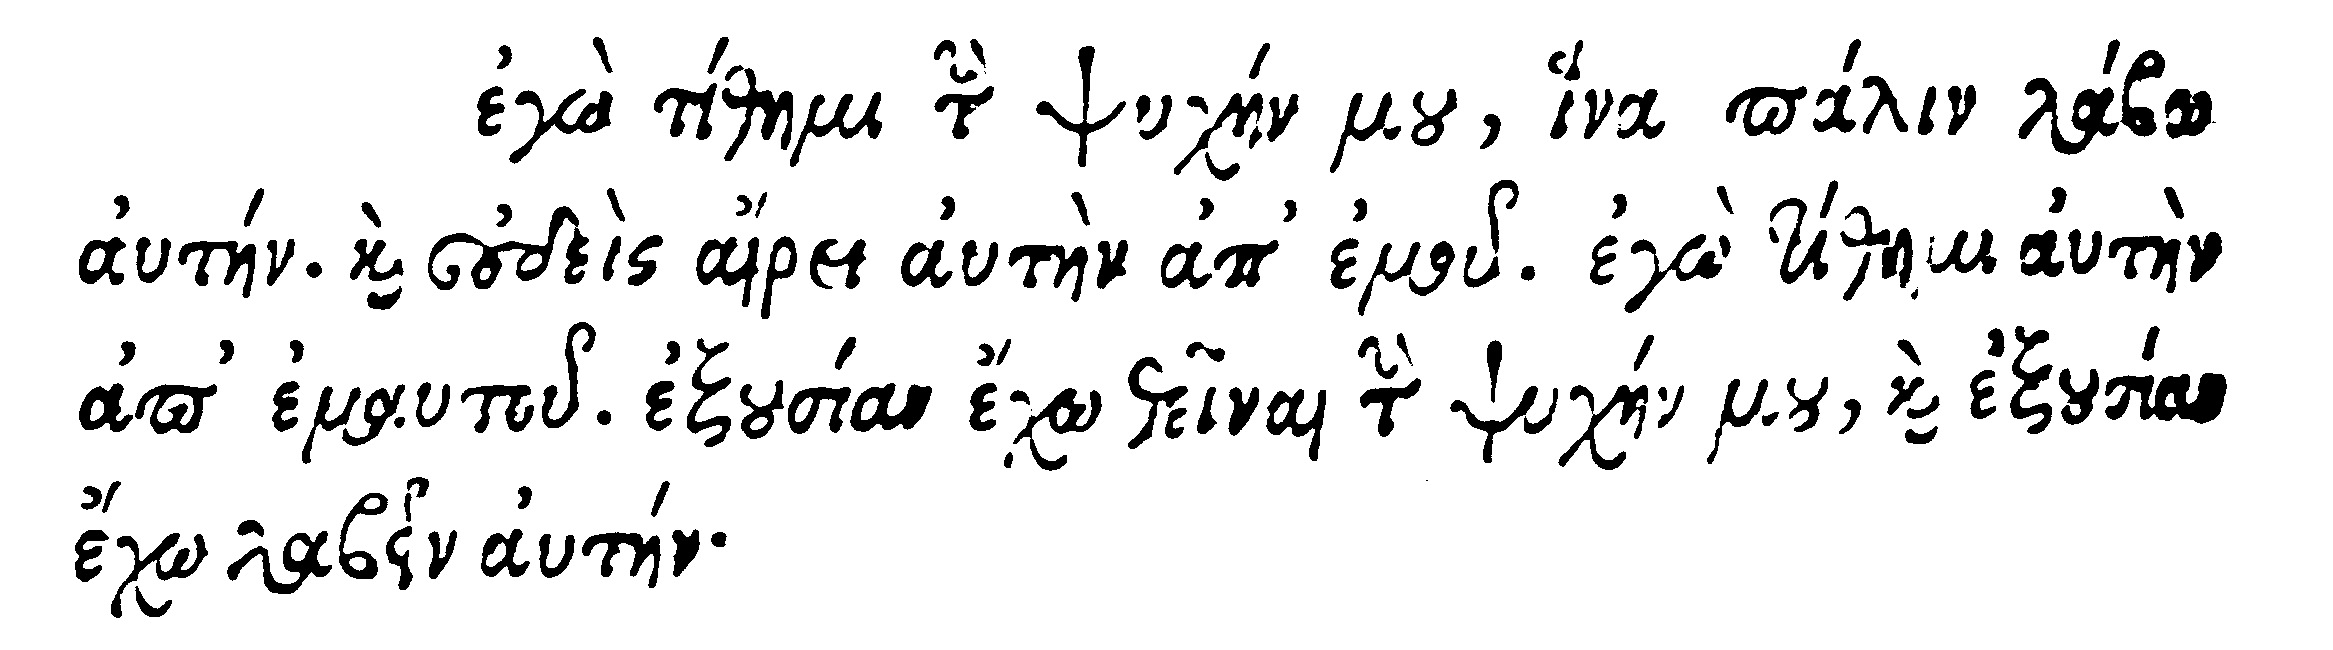 ἐγὼ τίθημι τὴν ψυχήν μου, ἵνα πάλιν λάβω
αὐτήν. καὶ οὐδεὶς αἴρει αὐτὴν ἀπ' ἐμοῦ. ἐγὼ τίθημι αὐτὴν
ἀπ' ἐμαυτοῦ. ἐξουσίαν ἔχω θεῖναι τὴν ψυχήν μου, καὶ ἐξουσίαν
ἔχω λαβεῖν αὐτήν.